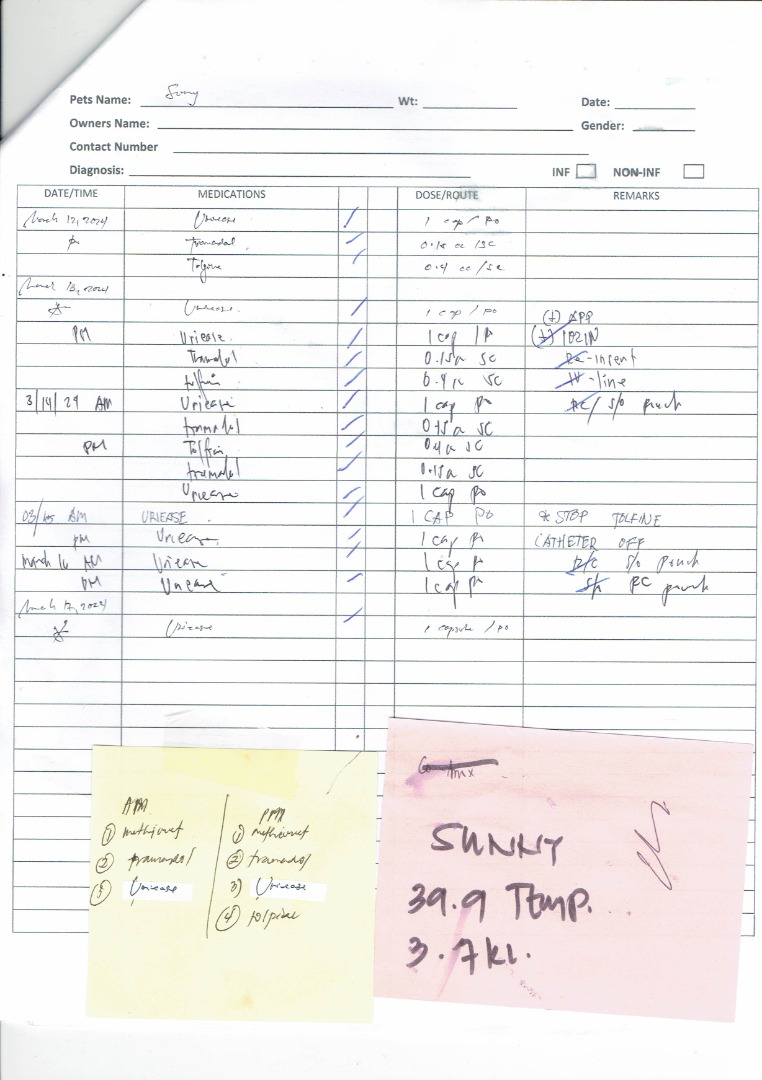 Pets Name: Sunny Wt: Date:
Owners Name: Gender:
Contact Number
Diagnosis: INF NON-INF
DATE/TIME MEDICATIONS DOSE/ROUTE REMARKS
March 12, 2024 Uriease 1 cap / PO
tramadol 0.15 cc / SC
Tolfine 0.4 cc / SC
March 13, 2024
Uriease 1 cap / PO (+) APP
PM Uriease 1 cap / P (+) URIN
Tramadol 0.15cc SC Re-insert
0.4cc SC IV-line
3/14/24 AM Uriease 1 cap PO s/o pouch
tramadol 0.15cc SC
PM 0.4cc SC
tramadol 0.15cc SC
Uriease 1 cap PO
AM URIEASE 1 CAP PO * STOP TOLFINE
PM Uriease 1 cap PO CATHETER OFF
March 16 AM Uriease 1 cap PO s/o pouch
PM Uriease 1 cap PO RC pouch
March 17, 2024
Uriease 1 capsule / PO
AM
①
② tramadol
③ Uriease
PM
①
② tramadol
3) Uriease
④
SUNNY
39.9 Temp.
3.7kl.